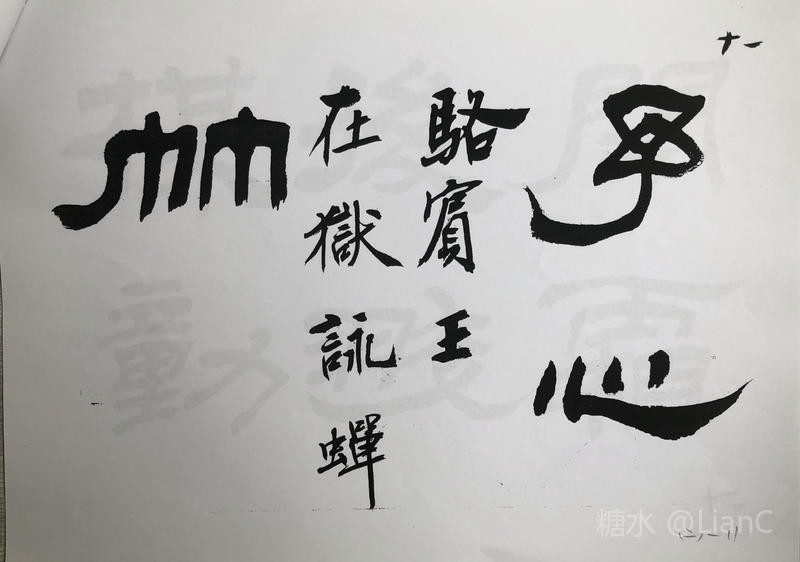 十一
予心
駱賓王
在獄詠蟬
糖水 @LianC